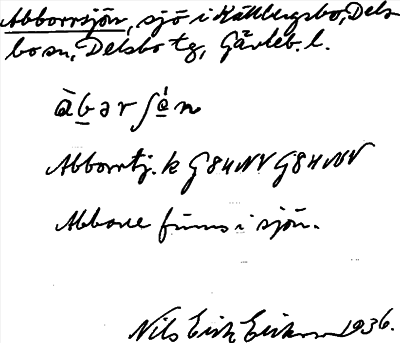 Abborrsjön, sjö i Källbergsbo, Dels
bo sn, Delsbo tg, Gävleb. l.
àbərʃǿn
Abborrtj. k G84NV G84NV
Abborre finns i sjön.
Nils Erik Erikson 1936.